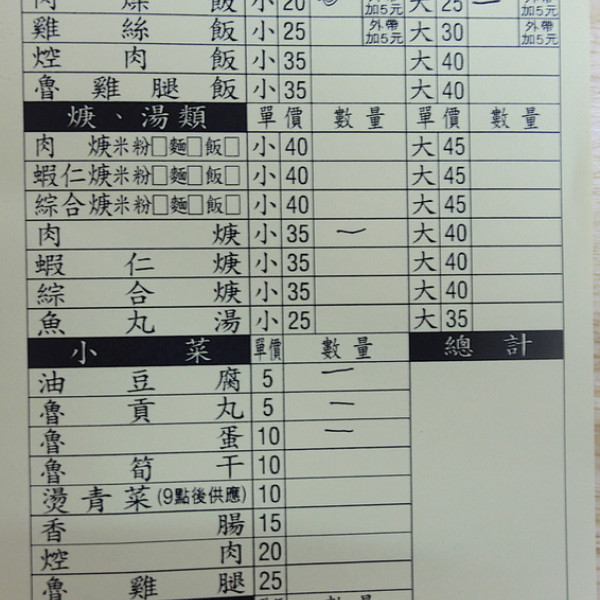 肉 燥 飯 小 20 外帶加5元 大 25 外帶加5元
雞 絲 飯 小 25 外帶加5元 大 30 外帶加5元
焢 肉 飯 小 35 大 40
魯 雞 腿 飯 小 35 大 40
焿、湯類 單價 數量 單價 數量
肉 焿米粉□麵□飯□ 小 40 大 45
蝦仁焿米粉□麵□飯□ 小 40 大 45
綜合焿米粉□麵□飯□ 小 40 大 45
肉 焿 小 35 一 大 40
蝦 仁 焿 小 35 大 40
綜 合 焿 小 35 大 40
魚 丸 湯 小 25 大 35
小 菜 單價 數量 總計
油 豆 腐 5 一
魯 貢 丸 5 二
魯 蛋 10 一
魯 筍 干 10
燙青菜(9點後供應) 10
香 腸 15
焢 肉 20
魯 雞 腿 25